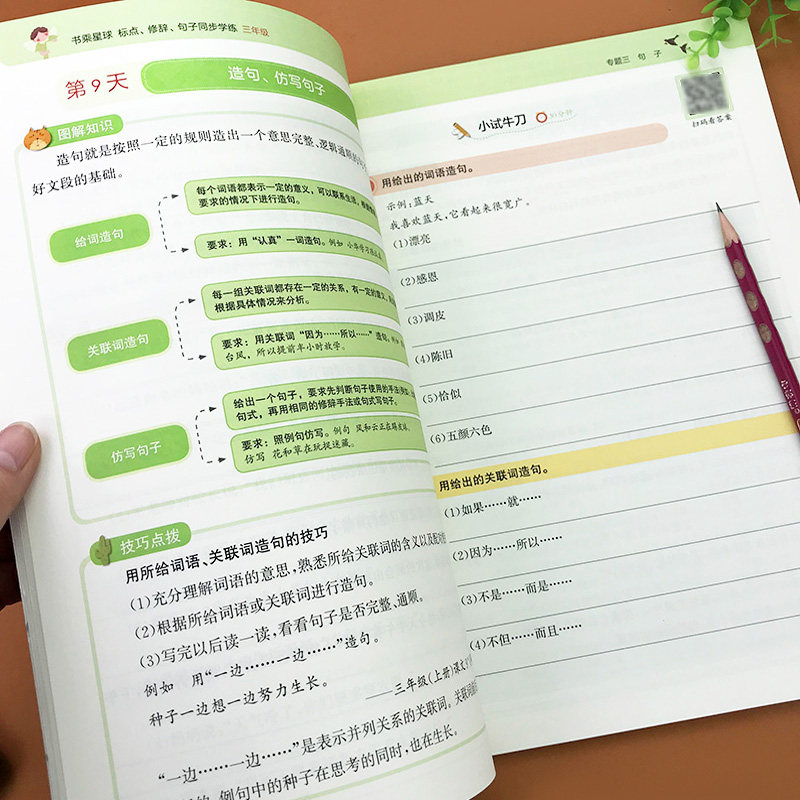 书乘星球 标点、修辞、句子同步学练 三年级
第9天
造句、仿写句子
图解知识
造句就是按照一定的规则造出一个意思完整、逻辑通顺的句
好文段的基础。
给词造句
每个词语都表示一定的意义，可以联系生活，
要求的情况下进行造句。
要求：用“认真”一词造句。例如 小华学习
关联词造句
每一组关联词都存在一定的关系，有一定的意义，
根据具体情况来分析。
要求：用关联词“因为……所以……”造句。
台风，所以提前半小时放学。
仿写句子
给出一个句子，要求先判断句子使用的手法
句式，再用相同的修辞手法或句式写句子。
要求：照例句仿写。例句 风和云正在
仿写 花和草在玩捉迷藏。
技巧点拨
用所给词语、关联词造句的技巧
(1)充分理解词语的意思，熟悉所给关联词的含义以及
(2)根据所给词语或关联词进行造句。
(3)写完以后读一读，看看句子是否完整、通顺。
例如 用“一边……一边……”造句。
种子一边想一边努力生长。
——三年级(上册)课文
“一边……一边……”是表示并列关系的关联词。关联词
例句中的种子在思考的同时，也在生长。
专题三 句 子
扫码看答案
小试牛刀 30分钟
用给出的词语造句。
示例：蓝天
我喜欢蓝天，它看起来很宽广。
(1)漂亮
(2)感恩
(3)调皮
(4)陈旧
(5)恰似
(6)五颜六色
用给出的关联词造句。
(1)如果……就……
(2)因为……所以……
(3)不是……而是……
(4)不但……而且……